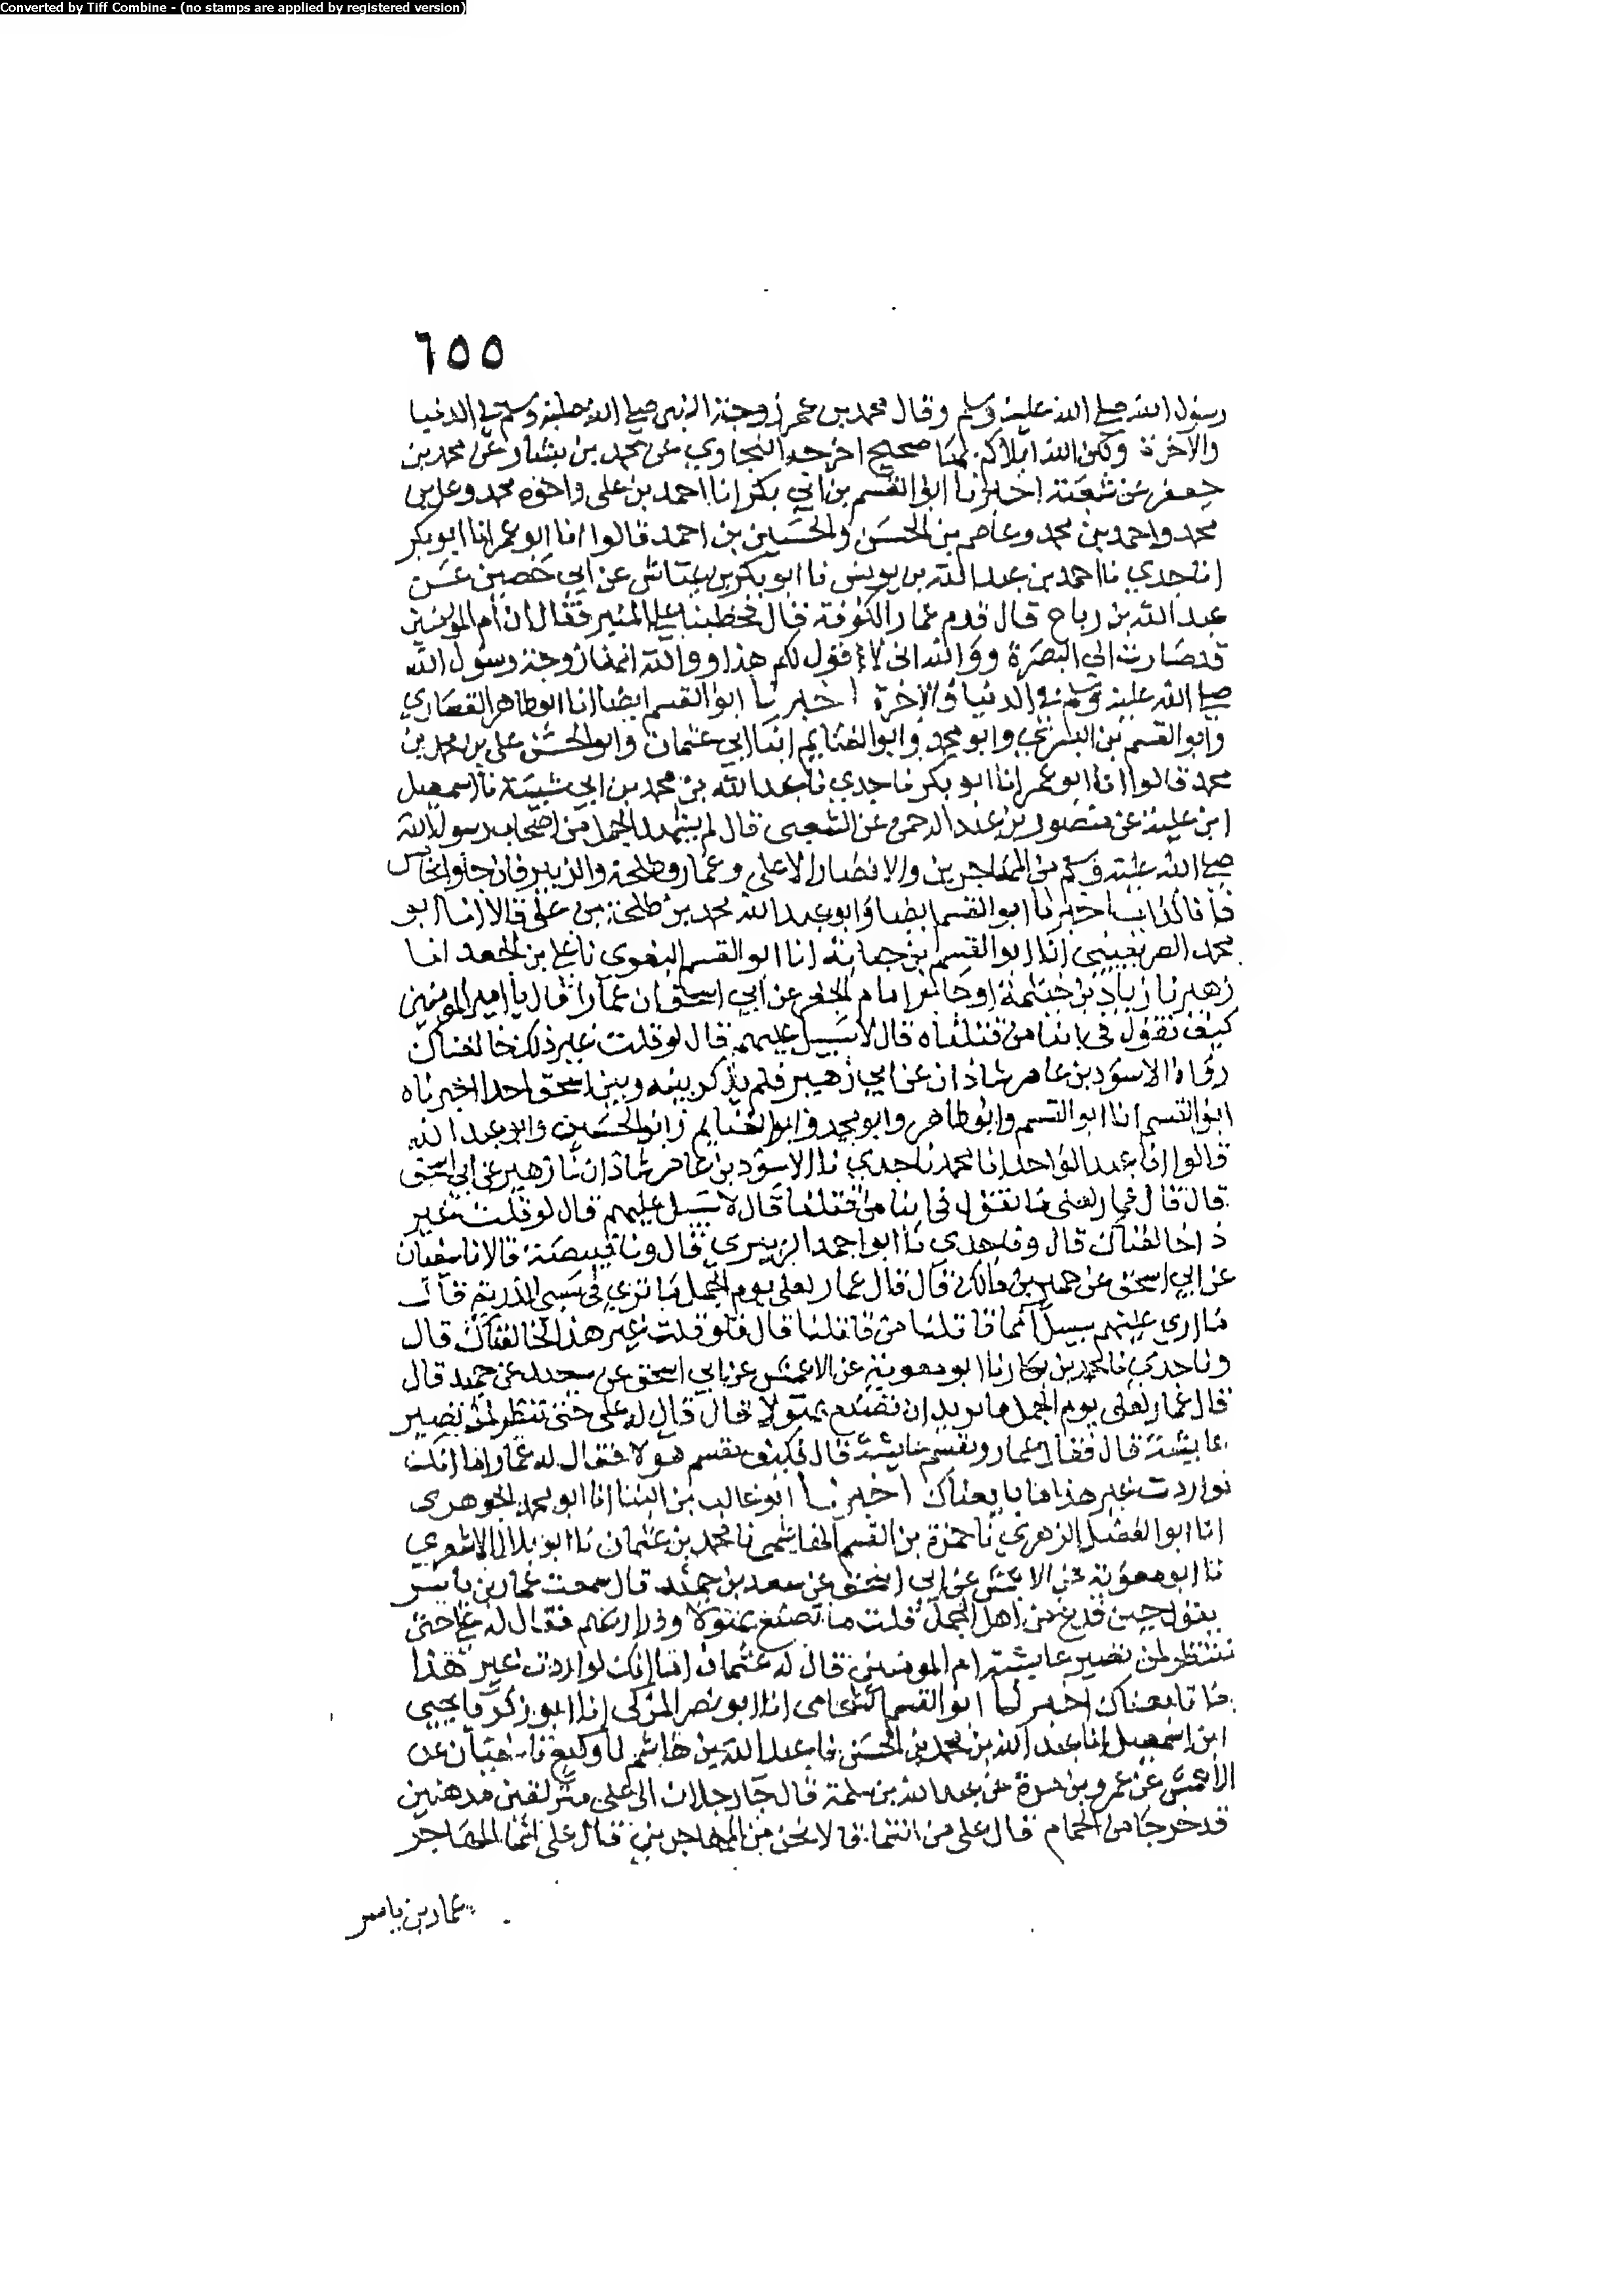 Converted by Tiff Combine - (no stamps are applied by registered version)
٦٥٥
رسول الله صلى الله عليه وسلم وقال محمد بن عمر زوجة النبي صلى الله عليه وسلم في الدنيا
والآخرة ولكن الله ابتلاكم بها صحيح اخرجه البخاري عن محمد بن بشار عن محمد بن
جعفر عن شعبة اخبرنا ابو القسم بن ابي بكر انا احمد بن علي واخوه محمد وعلي بن
محمد واحمد بن محمد وعاصم بن الحسن والحسين بن احمد قالوا انا ابو عمر انا ابو بكر
انا جدي نا احمد بن عبد الله بن يونس نا ابو بكر بن عياش عن ابي حصين عن
عبد الله بن رباح قال قدم عمار الكوفة قال فخطبنا على المنبر فقال ان أم المومنين
قد صارت الي البصرة ووالله اني لا اقول لكم هذا ووالله انها زوجة رسول الله
صلى الله عليه وسلم في الدنيا والآخرة اخبرنا ابو القسم ايضا انا ابو طاهر القصاري
وابو القسم بن البسري وابو محمد وابو الغنايم ابنا ابي عثمان وابو الحسن علي بن محمد بن
محمد قالوا انا ابو عمر انا ابو بكر نا جدي نا عبد الله بن محمد بن ابي شيبة نا اسمعيل
ابن علية عن منصور بن عبد الرحمن عن الشعبي قال لم يشهد الجمل من اصحاب رسول الله
صلى الله عليه وسلم من المهاجرين والانصار الا علي وعمار وطلحة والزبير فان جاوا بخامس
فانا كذاب اخبرنا ابو القسم ايضا وابو عبد الله محمد بن طلحة بن علي قالا انا ابو
محمد الصريفيني انا ابو القسم بن حبابة انا ابو القسم البغوي نا علي بن الجعد انا
زهير نا زياد بن خيثمة او جابر امام الجعفر عن ابي اسحق ان عمارا قال يا امير المومنين
كيف تقول في ابنا من قتلناه قال لا سبيل عليهم قال لو قلت غير ذلك خالفناك
رواه الاسود بن عامر شاذان عن ابي زهير فلم يذكر بينه وبين اسحق احدا اخبرناه
ابو القسم انا ابو القسم وابو طاهر وابو محمد وابو الغنايم وابو الحسين وابو عبد الله
قالوا انا عبد الواحد انا محمد نا جدي نا الاسود بن عامر شاذان نا زهير عن ابي اسحق
قال قال عمار لعلي ما تقول في ابنا من قتلنا قال لا سبيل عليهم قال لو قلت غير
ذا خالفناك قال ونا جدي نا ابو احمد الزبيري قال ونا قبيصة قالا نا سفيان
عن ابي اسحق عن حمير بن مالك قال قال عمار لعلي يوم الجمل ما تري في سبي الذرية قال
ما اري عليهم سبيلا انما قاتلنا من قاتلنا قال فلو قلت غير هذا لخالفناك قال
ونا جدي نا محمد بن بكار نا ابو معوية عن الاعمش عن ابي اسحق عن سعيد عن حميد قال
قال عمار لعلي يوم الجمل ما تريد ان تصنع بهولا قال قال له علي حتى تنظر لمن تصير
عايشة قال فقال عمار ونقسم عايشة قال فكيف نقسم هولا فقال له عمار اما انك
لو اردت غير هذا ما بايعناك اخبرنا ابو غالب بن البنا انا ابو محمد الجوهري
انا ابو الفضل الزهري نا حمزة بن القسم الهاشمي نا محمد بن عثمان نا ابو بلال الاشعري
نا ابو معوية عن الاعمش عن ابي اسحق عن سعد بن حميد قال سمعت عمار بن ياسر
يقول حين فرغ من اهل الجمل قلت ما تصنع بهولا وذراريهم فقال له علي حتى
ننظر لمن تصير عايشة ام المومنين قال له عثمان اما انك لو اردت غير هذا
ما تابعناك اخبرنا ابو القسم الشحامي انا ابو نصر المزكى انا ابو زكريا يحيي
ابن اسمعيل انا عبد الله بن محمد بن الحسن نا عبد الله بن هاشم نا وكيع نا سفيان عن
الأعمش عن عمرو بن مرة عن عبد الله بن سلمة قال جا رجلان الى علي متزلقين مدهنين
قد خرجا من الحمام قال علي من انتما قالا نحن من المهاجرين قال علي انما المهاجر
عمار بن ياسر